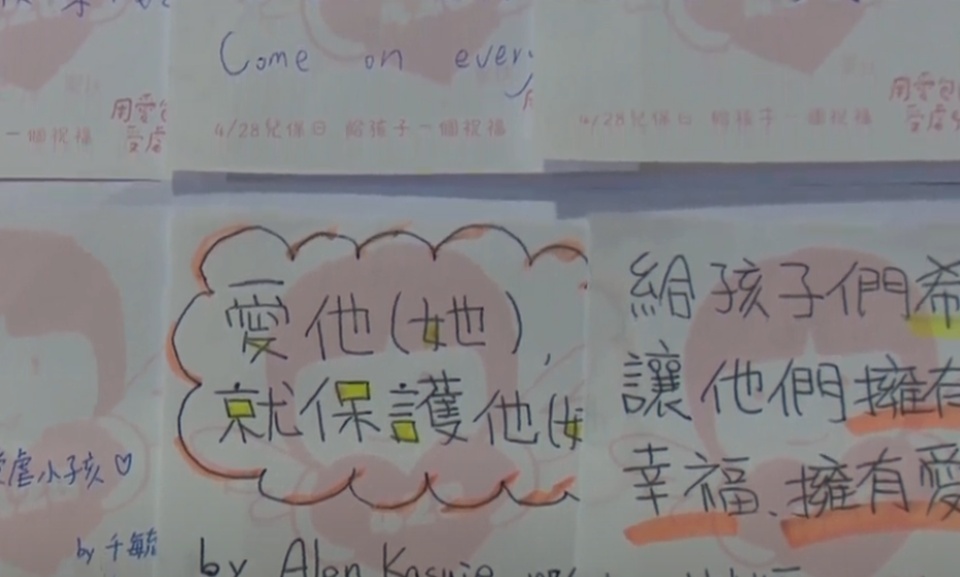 Come on ever
用愛包
受虐
一個祝福
4/28兒保日 給孩子一個祝福
4/28兒保日 給孩子一個祝福
用愛包
受虐
愛他(她),
就保護他(女
給孩子們希
讓他們擁有
幸福、擁有愛
虐小孩♡
by 千毓
by Alan